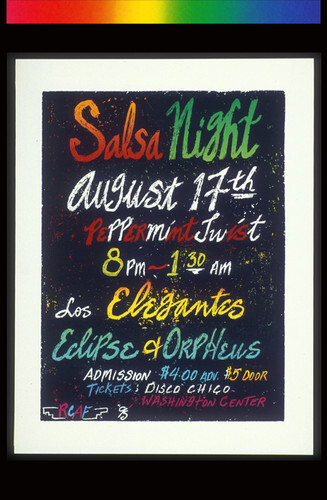 Salsa Night
August 17th
PEPPERmint Twist
8 PM - 1 30 AM
Los Elegantes
Eclipse & ORPHEUS
ADMISSION $4.00 ADV. $5 DOOR
TICKETS: DISCO CHICO
WASHINGTON CENTER
RCAF